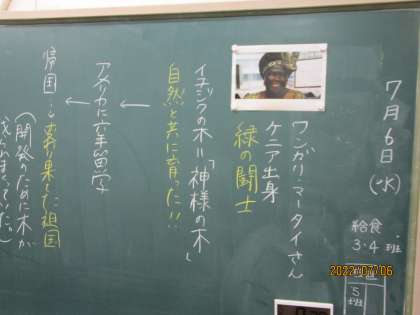 7月6日(水)
給食
3・4班
ワンガリ・マータイさん
ケニア出身
緑の闘士
イチジクの木=「神様の木」
自然と共に育った!!
アメリカに六年留学
帰国…変り果てた祖国
(開発のために木が
5
2022/07/06